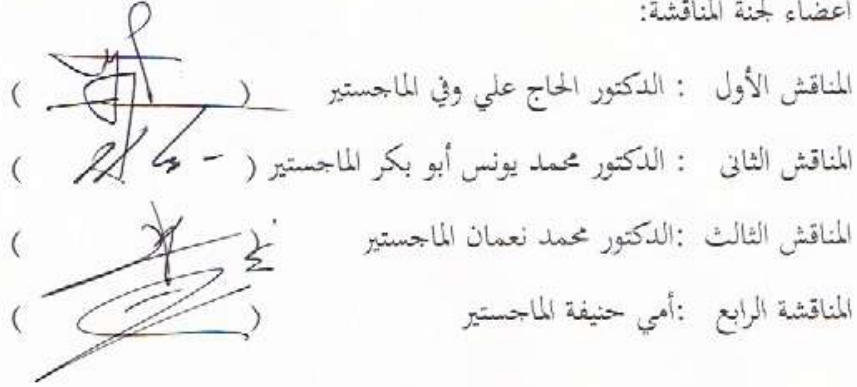 أعضاء لجنة المناقشة:
المناقش الأول : الدكتور الحاج علي وفي الماجستير ( )
المناقش الثاني : الدكتور محمد يونس أبو بكر الماجستير ( )
المناقش الثالث :الدكتور محمد نعمان الماجستير ( )
المناقشة الرابع :أمي حنيفة الماجستير ( )